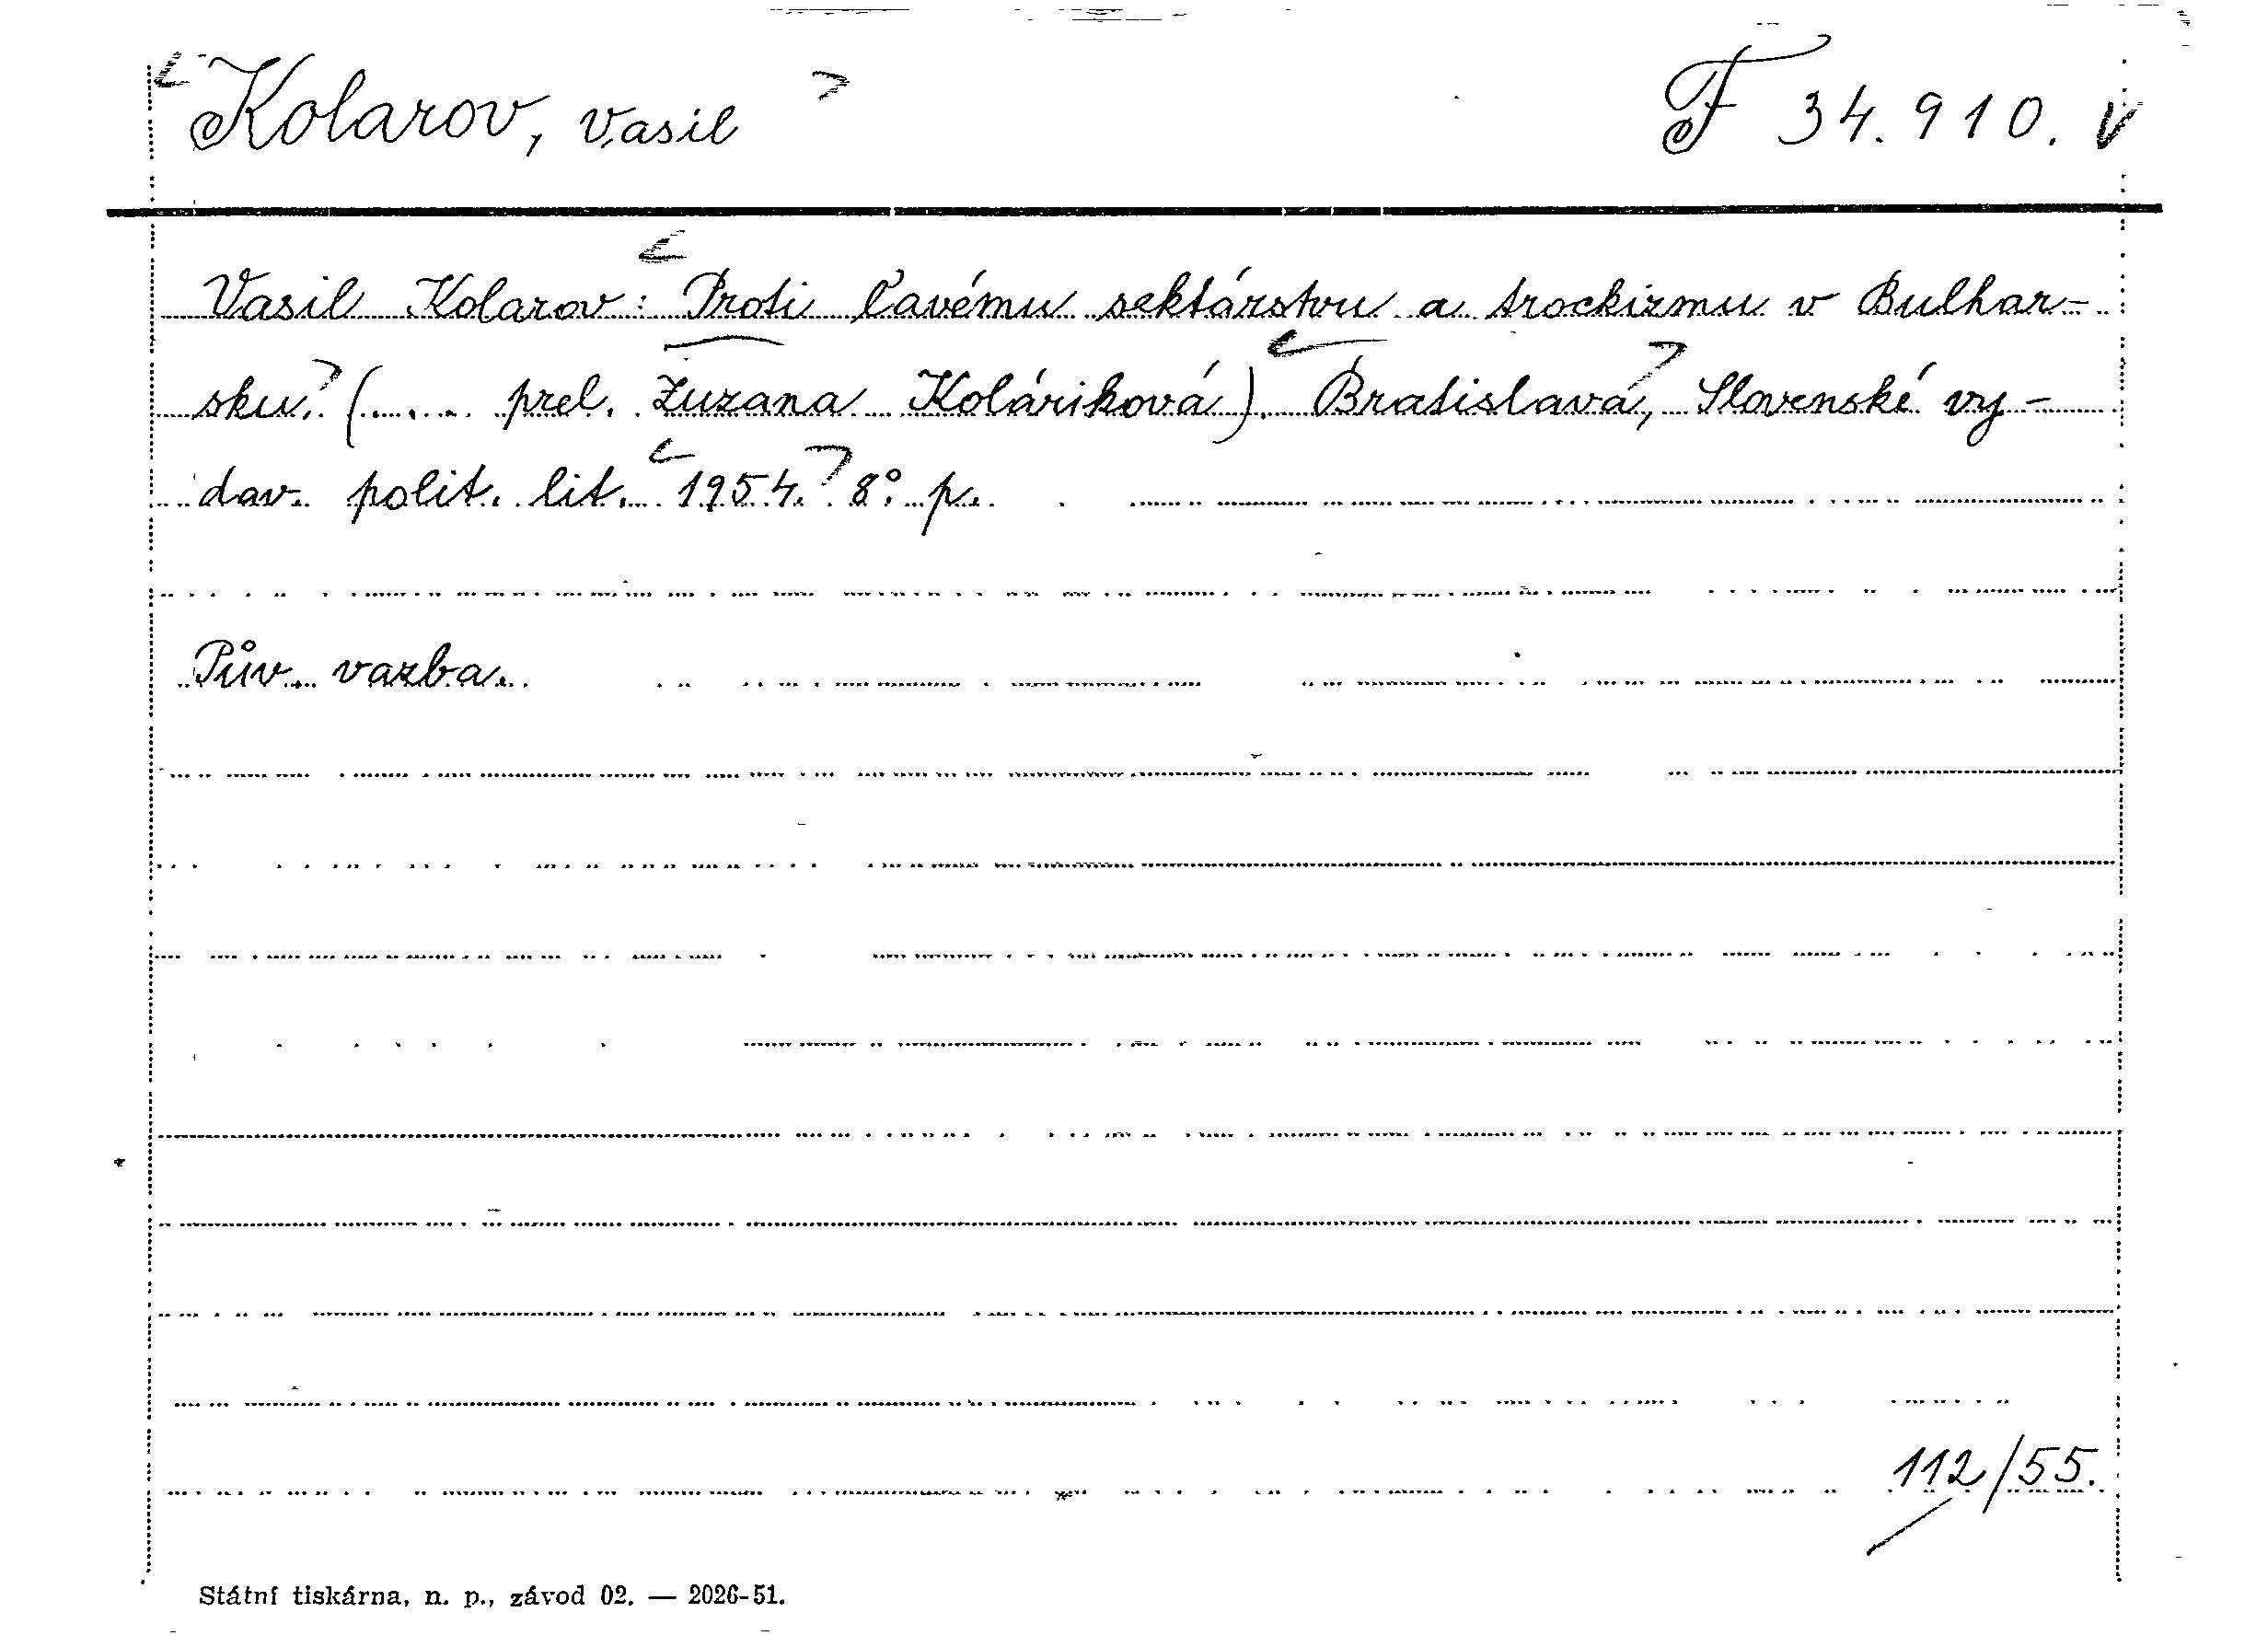 Kolarov, Vasil F 34.910. V
Vasil Kolarov: Proti ľavému sektárstvu a trockizmu v Bulhar-
sku. (.... prel. Zuzana Koláriková). Bratislava, Slovenské vy-
dav. polit. lit. 1954. 8° p.
Pův. vazba.
112/55.
Státní tiskárna, n. p., závod 02. — 2026-51.